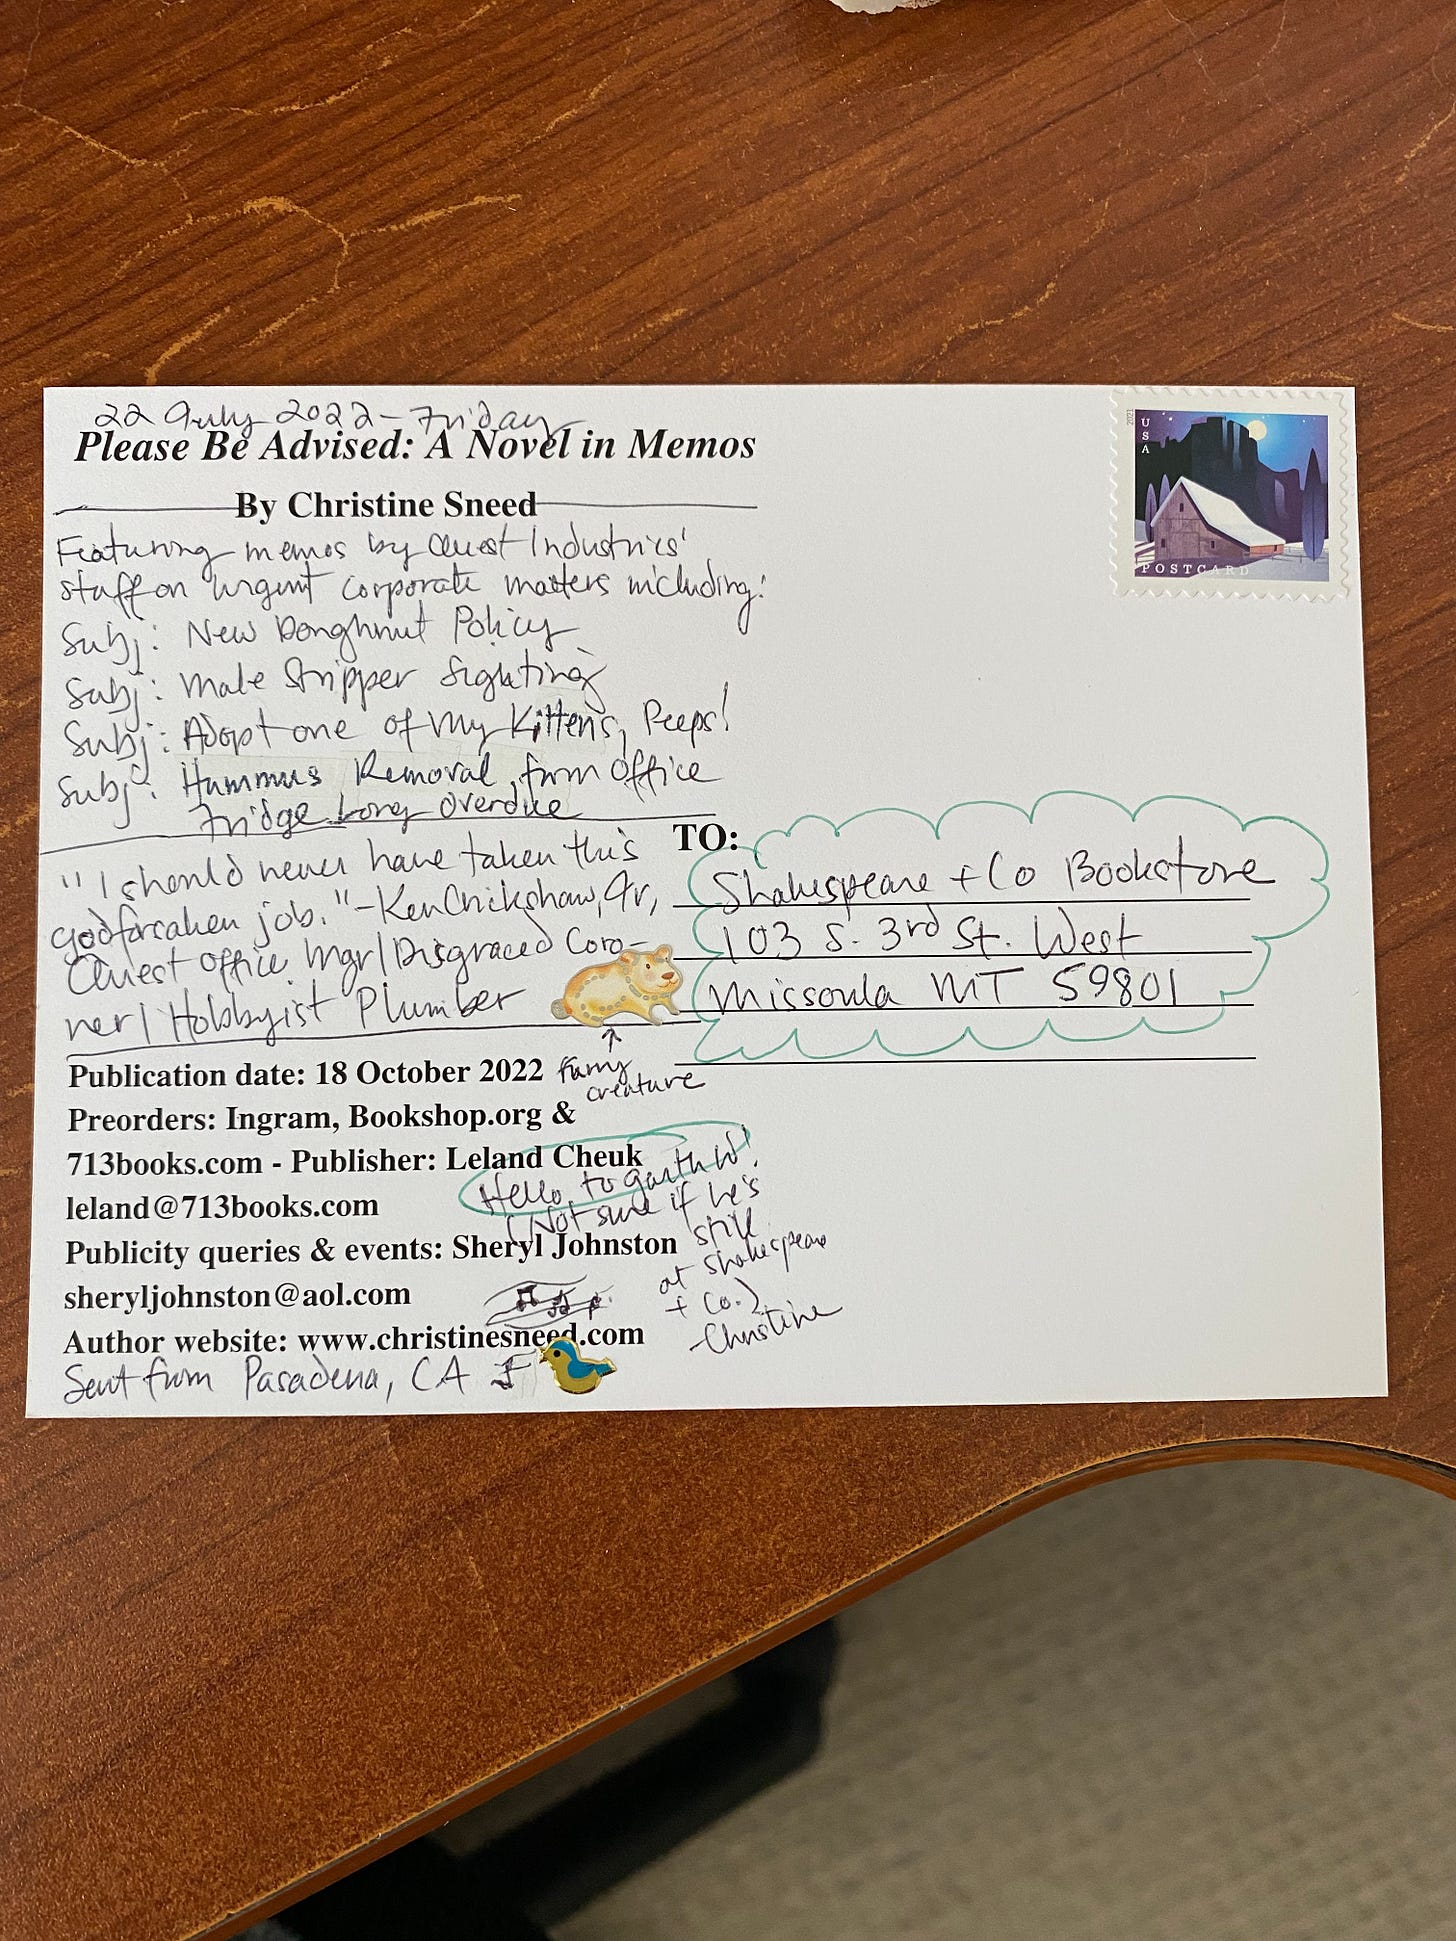 22 July 2022 - Friday
Please Be Advised: A Novel in Memos
By Christine Sneed
Featuring memos by Quest Industries'
staff on urgent corporate matters including:
Subj: New Doughnut Policy
Subj: Male Stripper Sighting
Subj: Adopt one of my Kittens, Peeps!
Subj: Hummus Removal from Office
Fridge Long Overdue
"I should never have taken this
godforsaken job." - Ken Crickshaw, Jr,
Quest Office Mgr/Disgraced Coro-
ner/Hobbyist Plumber
Publication date: 18 October 2022
Furry
creature
Preorders: Ingram, Bookshop.org &
713books.com - Publisher: Leland Cheuk
leland@713books.com
Publicity queries & events: Sheryl Johnston
sheryljohnston@aol.com
Author website: www.christinesneed.com
Sent from Pasadena, CA
Hello to Garth W!
(Not sure if he's
still
at Shakespeare
+ Co.)
-Christine
USA
2021
POSTCARD
TO:
Shakespeare + Co Bookstore
103 S. 3rd St. West
Missoula MT 59801